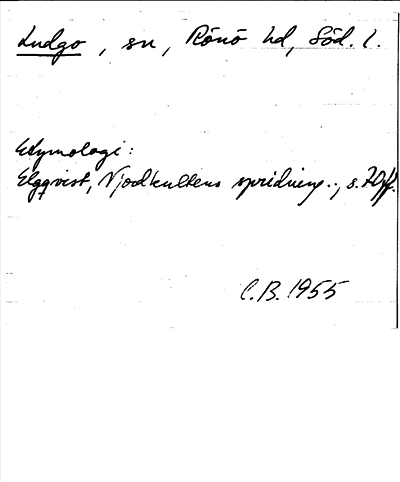 Ludgo, sn, Rönö hd, Söd. l.
Etymologi:
Elgqvist, Njordkultens spridning.., s. 70ff.
C.B. 1955